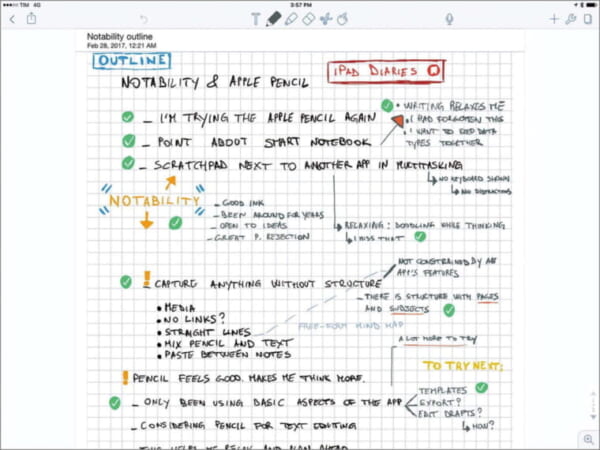 TIM 4G
3:57 PM
Notability outline
Feb 28, 2017, 12:21 AM
OUTLINE
iPAD DIARIES
NOTABILITY & APPLE PENCIL
- I'M TRYING THE APPLE PENCIL AGAIN
• WRITING RELAXES ME
• I HAD FORGOTTEN THIS
• I WANT TO KEEP DATA
TYPES TOGETHER
- POINT ABOUT SMART NOTEBOOK
- SCRATCHPAD NEXT TO ANOTHER APP IN MULTITASKING
↳ NO KEYBOARD SHOWN
↳ NO DISTRACTIONS
NOTABILITY
- GOOD INK
- BEEN AROUND FOR YEARS
- OPEN TO IDEAS
- GREAT P. REJECTION
↳ RELAXING: DOODLING WHILE THINKING
↳ I MISS THAT
! - CAPTURE ANYTHING WITHOUT STRUCTURE
NOT CONSTRAINED BY AN
APP'S FEATURES
- THERE IS STRUCTURE WITH PAGES
AND SUBJECTS
• MEDIA
• NO LINKS?
• STRAIGHT LINES
• MIX PENCIL AND TEXT
• PASTE BETWEEN NOTES
FREE-FORM MIND MAP
A LOT MORE TO TRY
TO TRY NEXT:
! PENCIL FEELS GOOD. MAKES ME THINK MORE.
- ONLY BEEN USING BASIC ASPECTS OF THE APP
TEMPLATES
EXPORT?
EDIT DRAFTS?
↳ HOW?
- CONSIDERING PENCIL FOR TEXT EDITING